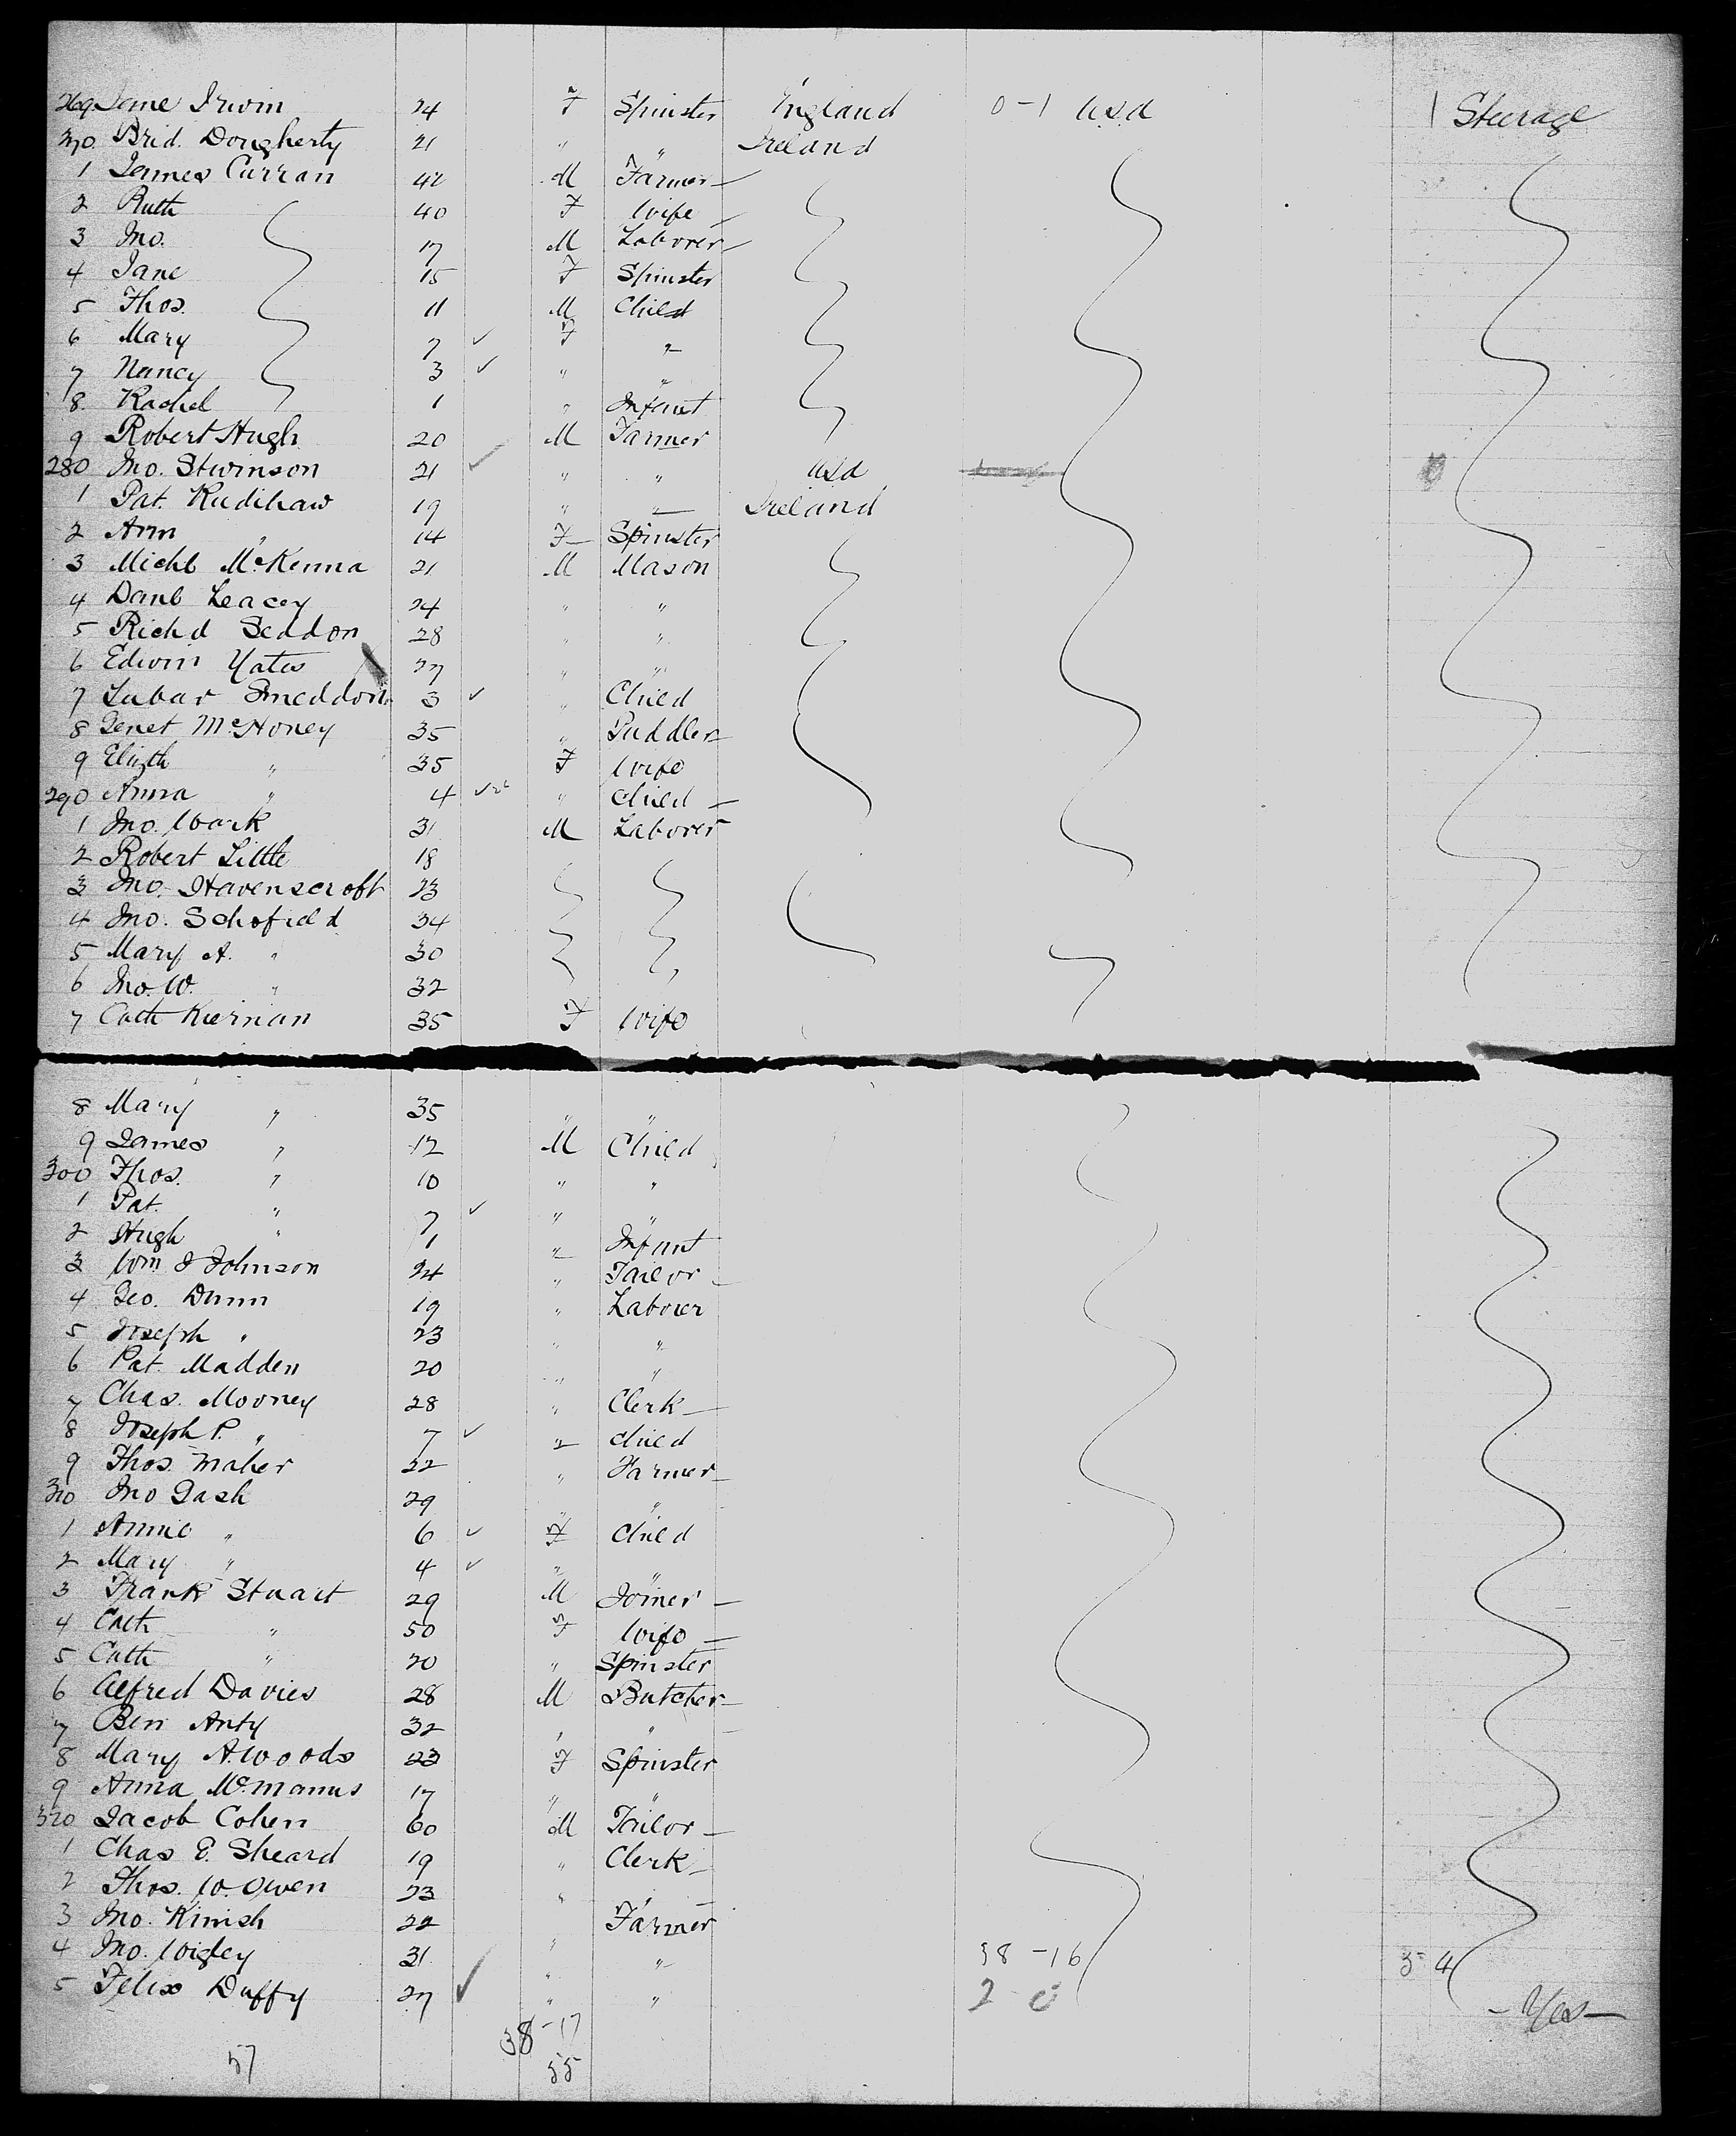 269 Jane Irwin 24 F Spinster England 0-1 USA 1 Steerage
270 Brid. Dougherty 21 " " Ireland
1 James Curran 42 M Farmer
2 Ruth 40 F Wife
3 Jno. 17 M Laborer
4 Jane 15 F Spinster
5 Thos. 11 M Child
6 Mary 7 F "
7 Nancy 3 " "
8 Rachel 1 " Infant
9 Robert Hugh 20 M Farmer
280 Jno. Stwinson 21 " " USA
1 Pat. 19 " " Ireland
2 Ann " 14 F Spinster
3 Michl McKenna 21 M Mason
4 Danl Leacey 24 " "
5 Richd Seddon 28 " "
6 Edwin Yates 27 " "
7 Smeddon 3 " Child
8 McHoney 35 " Puddler
9 Elizth " 35 F Wife
290 Anna " 4 " Child
1 Jno. Wark 31 M Laborer
2 Robert Little 18
3 Jno. Havenscroft 23
4 Jno. Schofield 34
5 Mary A. " 30
6 Jno. W. " 32
7 Cath Kiernan 35 F Wife
8 Mary " 35 " "
9 James " 12 M Child
300 Thos. " 10 " "
1 Pat. " 7 " "
2 Hugh " 1 " Infant
3 Wm J Johnson 24 " Tailor
4 Geo. Dunn 19 " Laborer
5 Joseph " 23 " "
6 Pat. Madden 20 " "
7 Chas. Mooney 28 " Clerk
8 Joseph P. " 7 " Child
9 Thos. Maher 22 " Farmer
310 Jno Dash 29 " "
1 Annie " 6 F Child
2 Mary " 4 " "
3 Frank Stuart 29 M Joiner
4 Cath " 50 F Wife
5 Cath " 20 " Spinster
6 Alfred Davies 28 M Butcher
7 Ben Anty 32 " "
8 Mary A. Woods 23 F Spinster
9 Anna McManus 17 " "
320 Jacob Cohen 60 M Tailor
1 Chas E. Sheard 19 " Clerk
2 Thos. W. Owen 23 "
3 Jno. Kinish 22 Farmer
4 Jno. Wigley 31 " " 38-16 54
5 Felix Duffy 27 " " 2 0 -Yes-
38-17
57 55